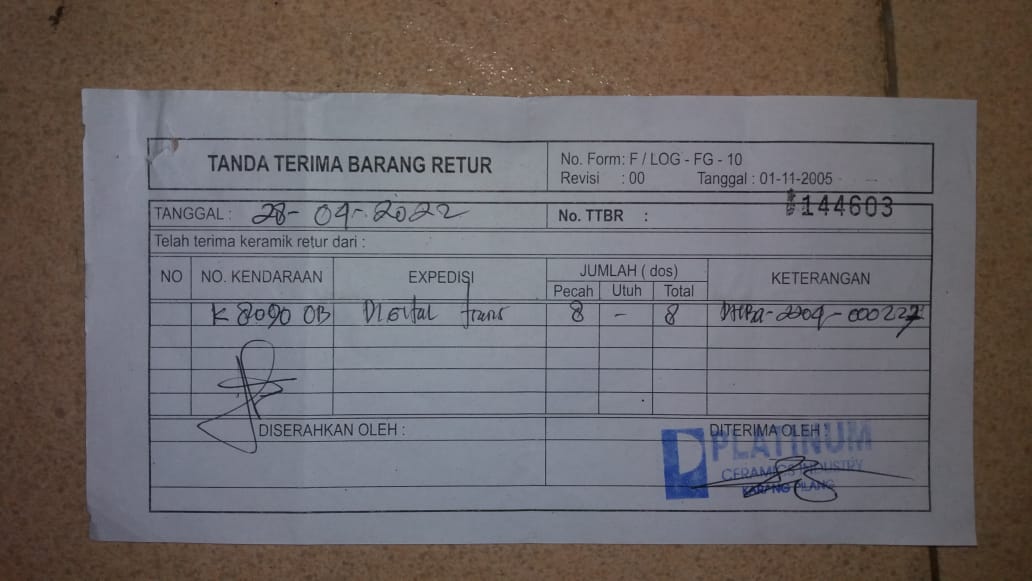 TANDA TERIMA BARANG RETUR
No. Form: F / LOG - FG - 10
Revisi : 00 Tanggal : 01-11-2005
TANGGAL : 28-04-2022
No. TTBR : 144603
Telah terima keramik retur dari :
NO NO. KENDARAAN EXPEDISI JUMLAH ( dos) KETERANGAN
Pecah Utuh Total
K 8090 OB Digital trans 8 - 8
DISERAHKAN OLEH : DITERIMA OLEH :
PLATINUM
CERAMICS INDUSTRY
KARANG PILANG